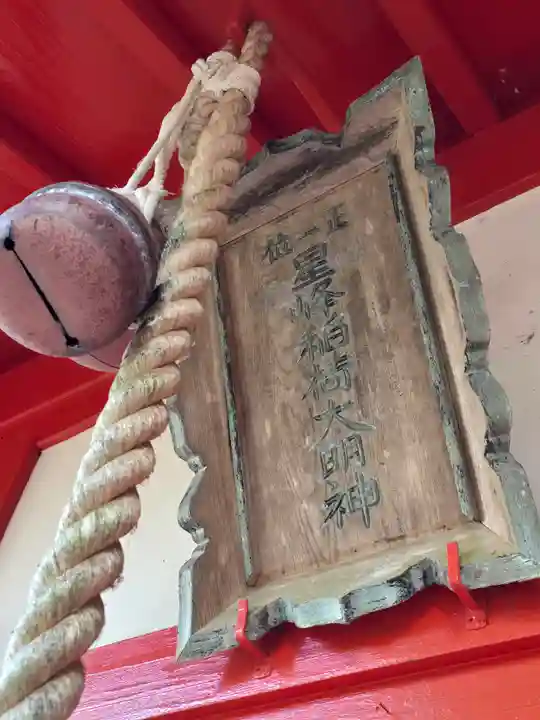 正一位
星峰稲荷大明神